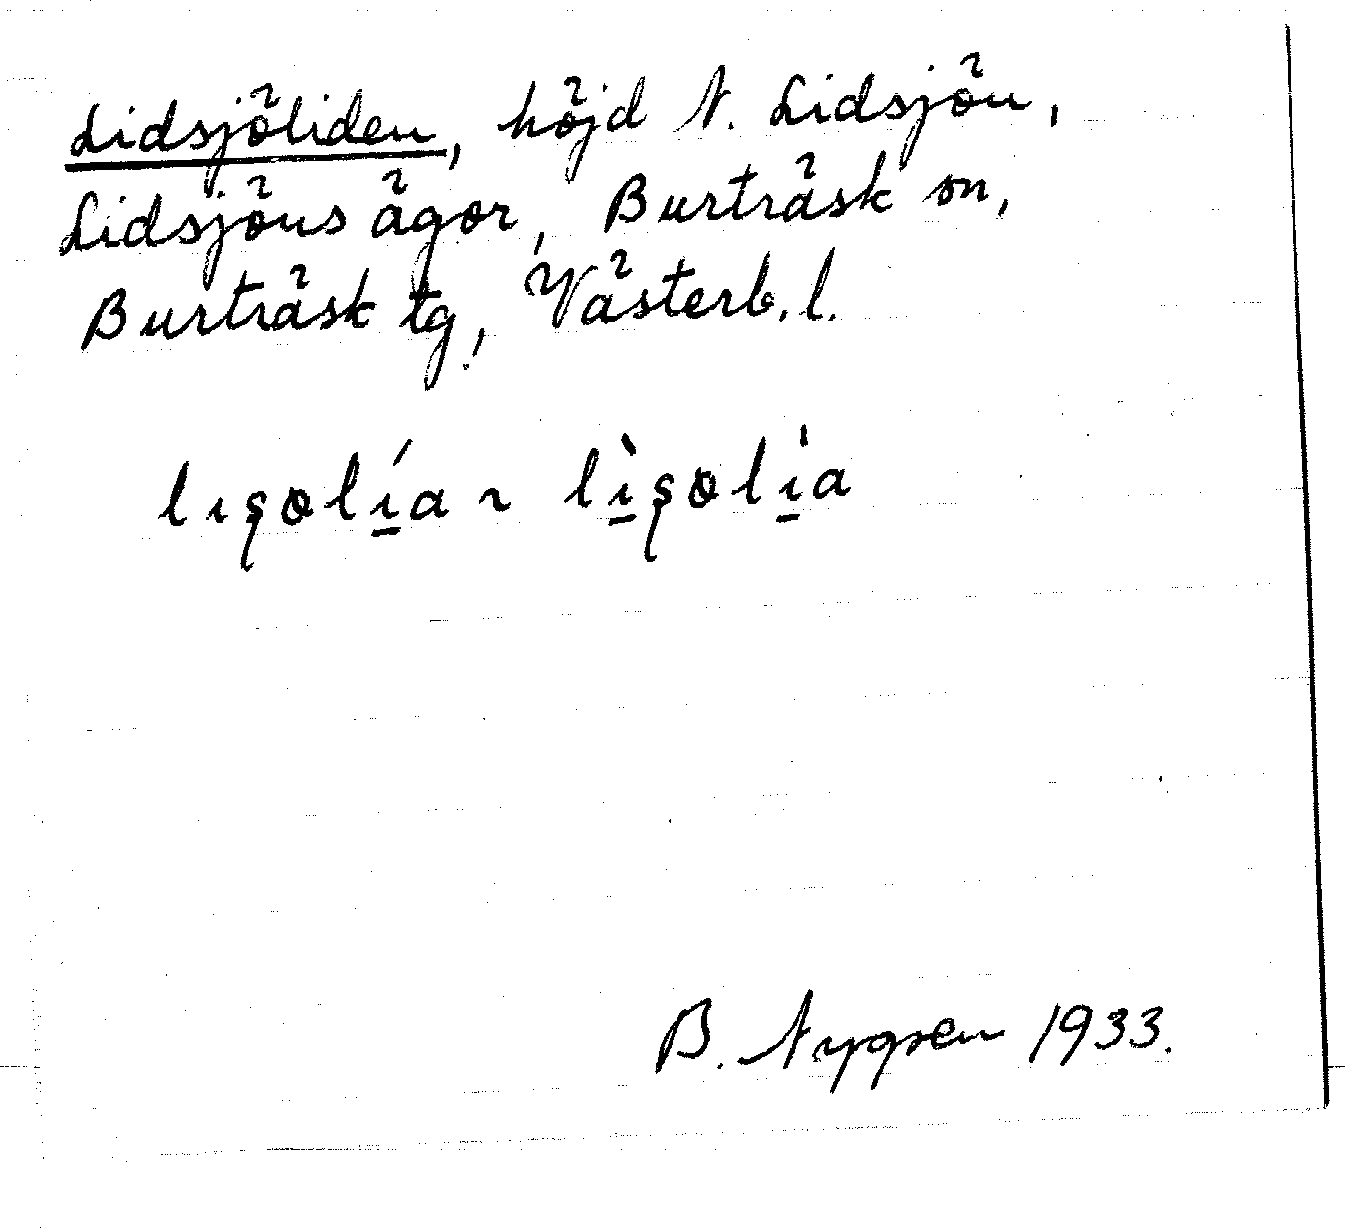 Lidsjöliden, höjd N. Lidsjön,
Lidsjöns ägor, Burträsk sn,
Burträsk tg, Västerb. l.
lıʂolı̱́a ~ lı̱̀ʂolı̱̍a
B. Nygren 1933.